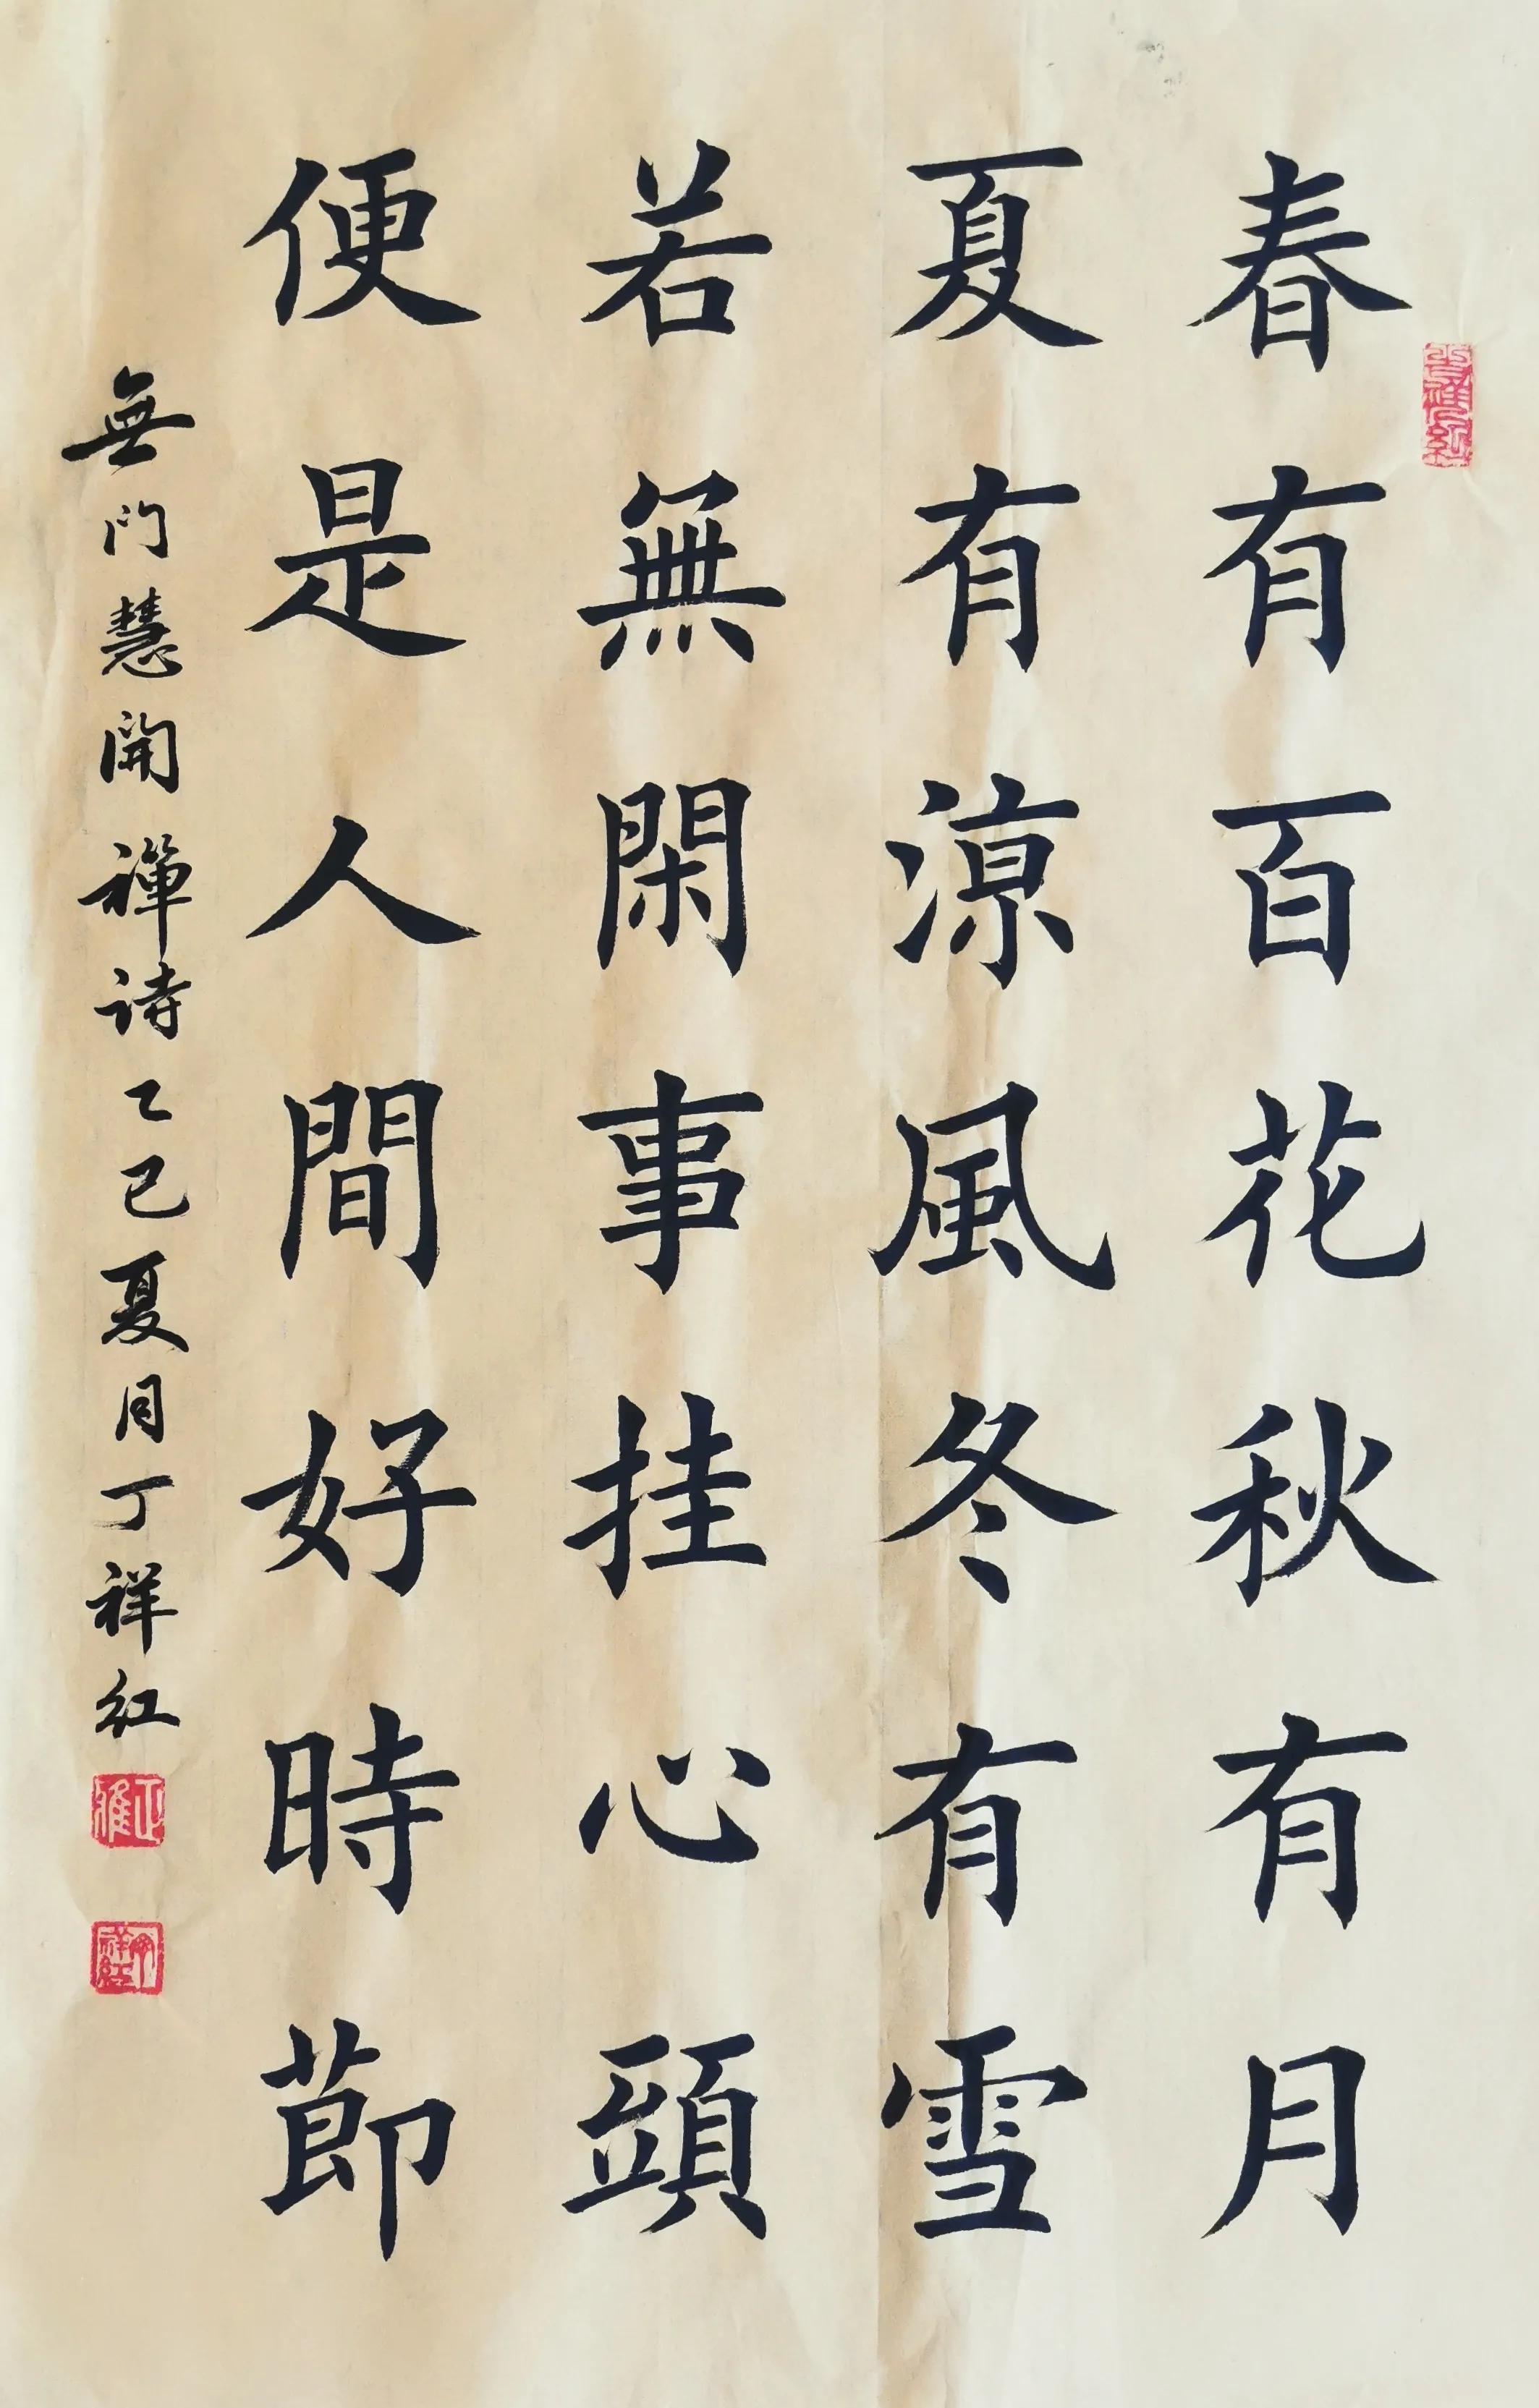 春有百花秋有月
夏有涼風冬有雪
若無閑事挂心頭
便是人間好時節
無門慧開禪诗乙巳夏月丁祥红